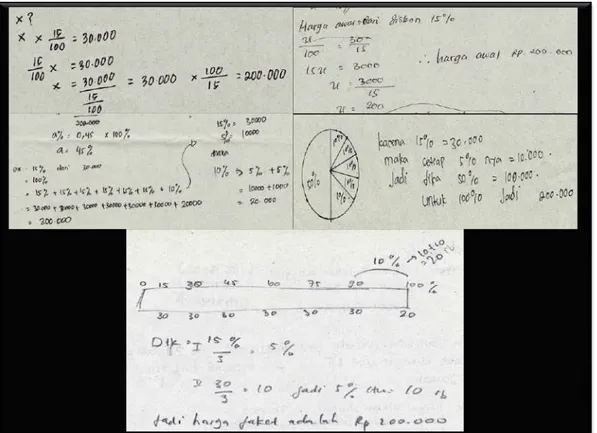 x ?
x × 15/100 = 30.000
15/100 x = 30.000
x = 30.000 / 15/100 = 30.000 × 100/15 = 200.000
Harga awal dari diskon 15%
x/100 = 30/15
15x = 3000
x = 3000/15
x = 200
∴ harga awal Rp. 200.000
200.000
a% = 0,45 × 100%
a = 45%
15% = 30000
5% = 10000
maka
10% → 5% + 5%
= 10000 + 10000
= 20.000
15% dari 30.000
= 100%
= 15% + 15% + 15% + 15% + 15% + 15% + 10%
= 30000 + 30000 + 30000 + 30000 + 30000 + 30000 + 20000
= 200.000
50%
10%
10%
10%
10%
10%
karena 15% = 30.000
maka setiap 5% nya = 10.000.
Jadi jika 50% = 100.000.
Untuk 100% Jadi 200.000
10% → 10+10
= 20
0 15 30 45 60 75 90 100 %
30 30 30 30 30 30 20
Dik = I 15%/3 = 5%
II 30/3 = 10 jadi 5% 10 rb
Jadi harga jaket adalah Rp 200.000